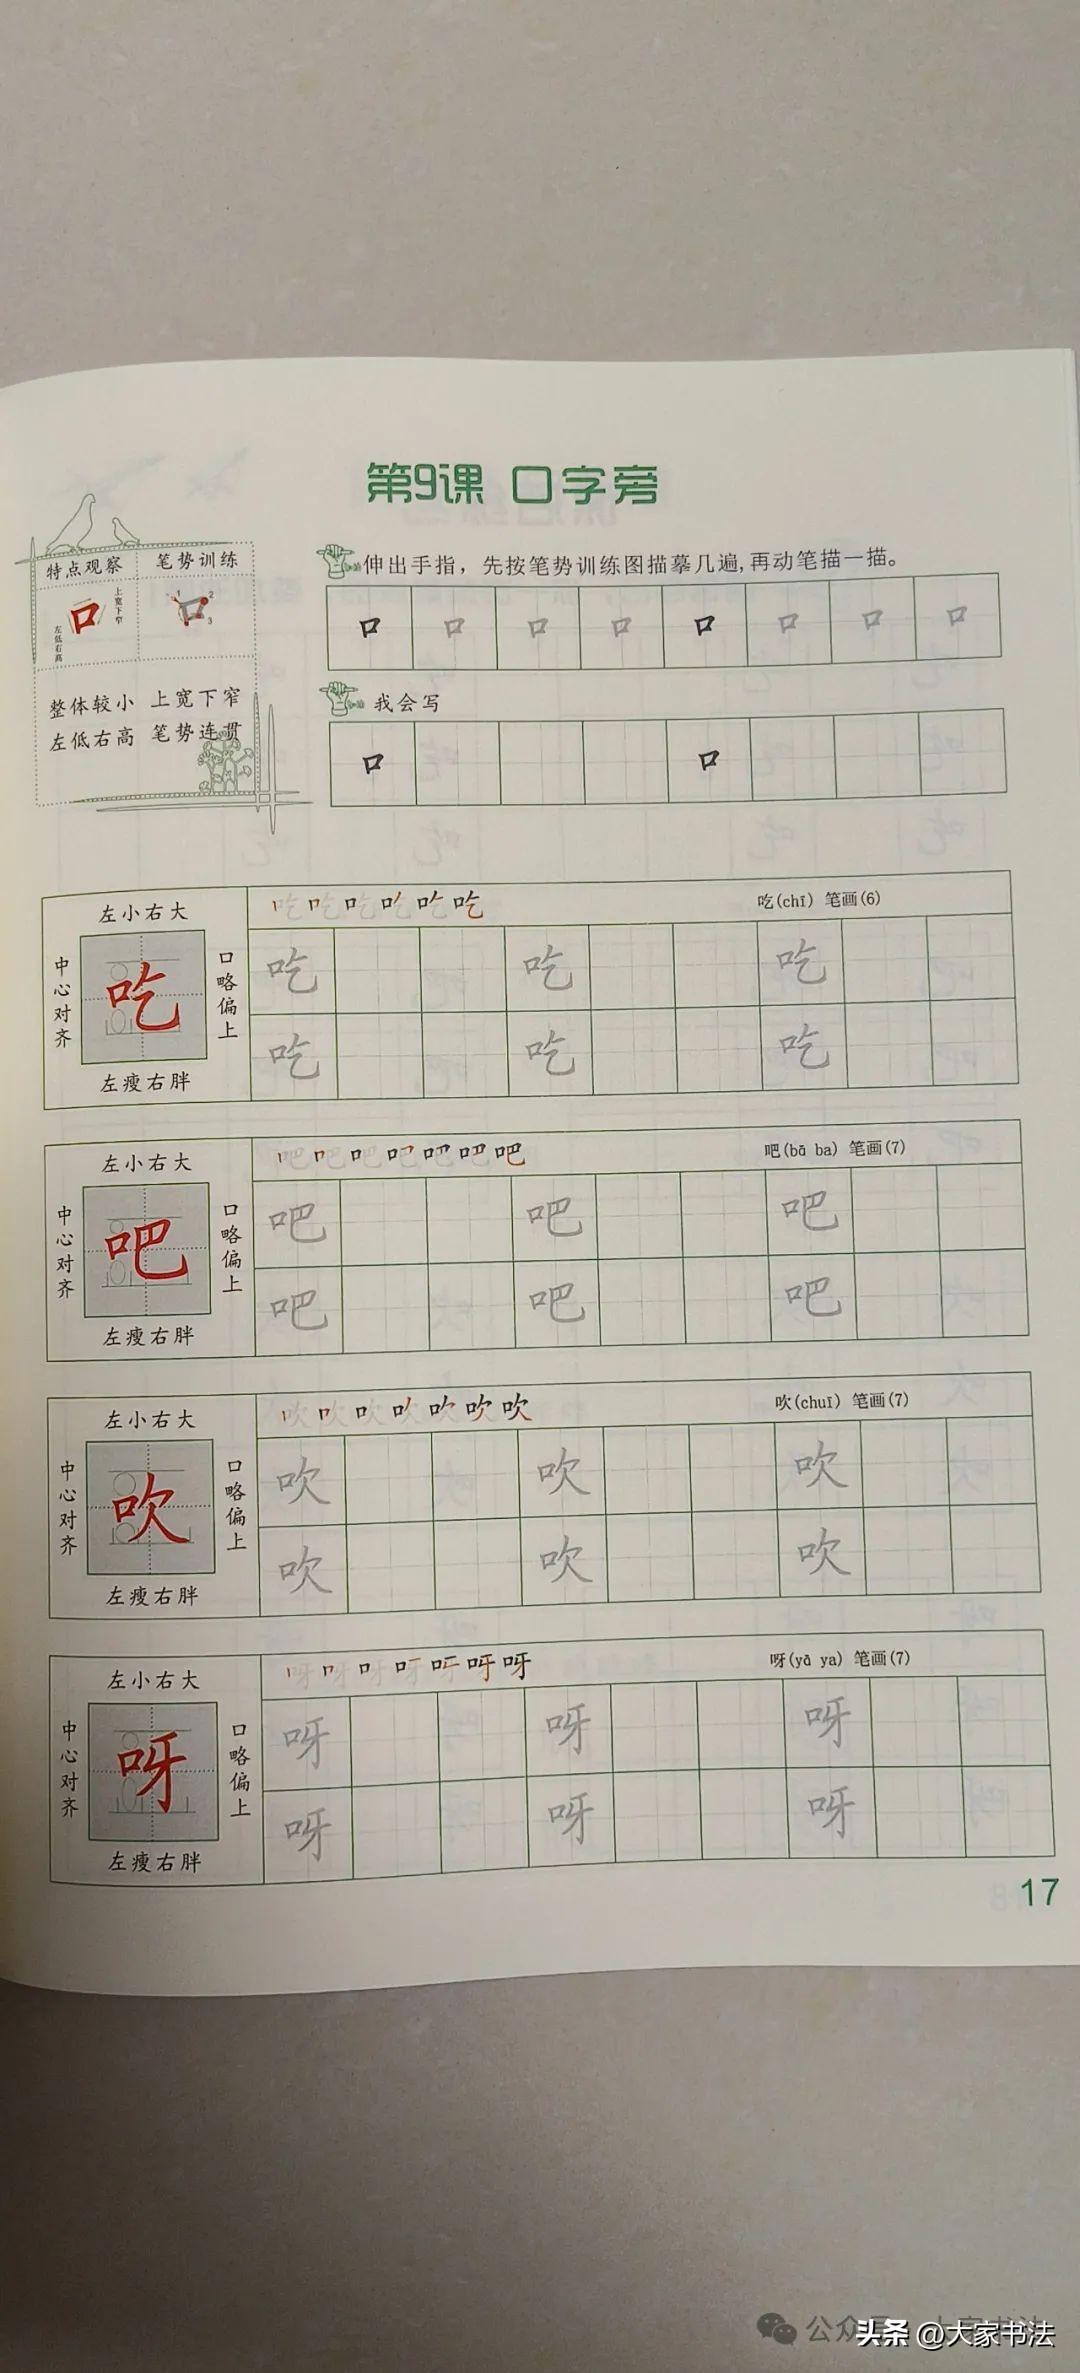 第9课 口字旁
特点观察 笔势训练
口 上宽下窄 左低右高
1 2 3
整体较小 上宽下窄
左低右高 笔势连贯
伸出手指，先按笔势训练图描摹几遍,再动笔描一描。
口 口 口 口 口 口 口 口
我会写
口 口
左小右大
中心对齐
吃
口略偏上
左瘦右胖
吃(chī) 笔画(6)
吃 吃 吃
吃 吃 吃
左小右大
中心对齐
吧
口略偏上
左瘦右胖
吧(bā ba) 笔画(7)
吧 吧 吧
吧 吧 吧
左小右大
中心对齐
吹
口略偏上
左瘦右胖
吹(chuī) 笔画(7)
吹 吹 吹
吹 吹 吹
左小右大
中心对齐
呀
口略偏上
左瘦右胖
呀(yā ya) 笔画(7)
呀 呀 呀
呀 呀 呀
17
头条 @大家书法